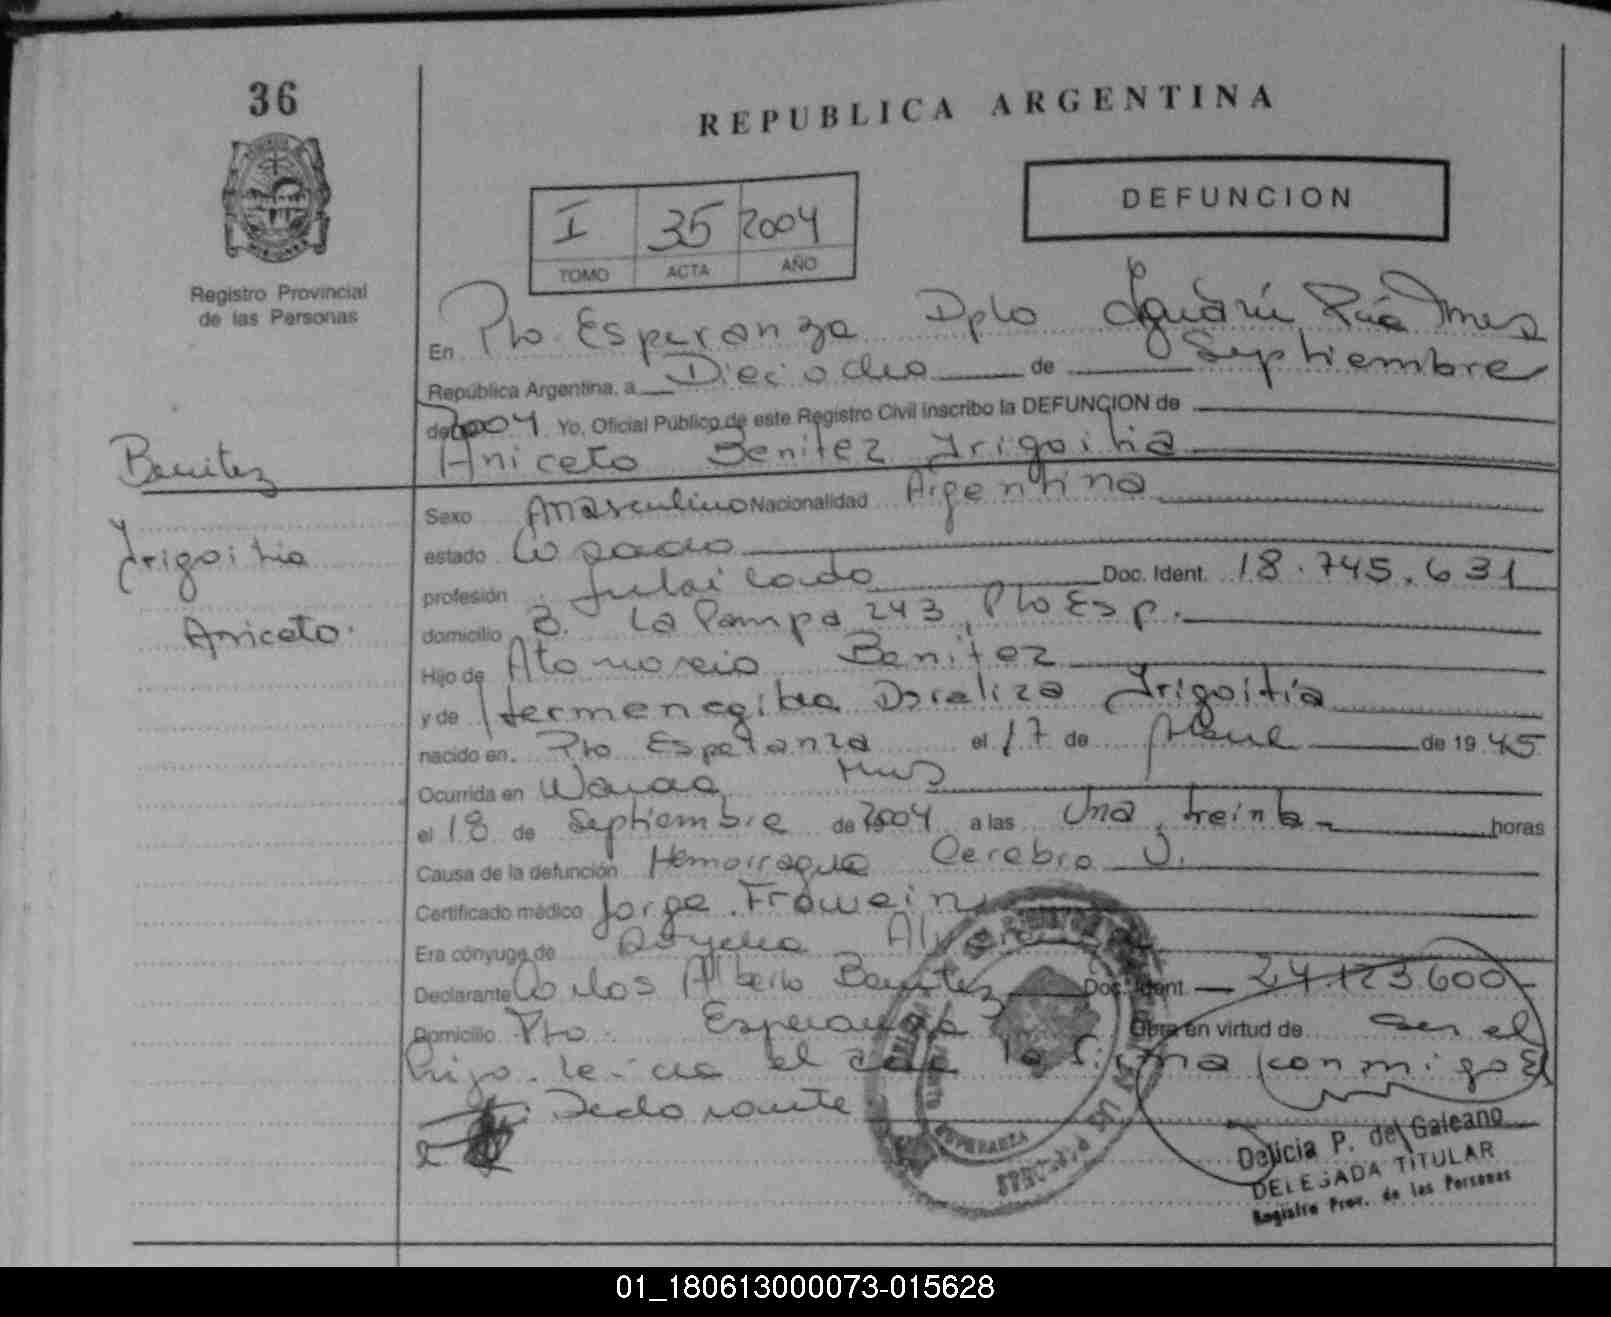 36
REPUBLICA ARGENTINA
DEFUNCION
I 35 2004
TOMO ACTA AÑO
Registro Provincial
de las Personas
En Pto Esperanza Dpto Iguazú
República Argentina, a Dieciocho de Septiembre
de 2004 Yo, Oficial Público de este Registro Civil inscribo la DEFUNCION de
Aniceto Benitez Yrigoitia
Benitez
Yrigoitia
Aniceto
Sexo Masculino Nacionalidad Argentina
estado Casado
profesión Jubilado Doc. Ident. 18.745.631
domicilio B. La Pampa 243, Pto Esp.
Hijo de Benitez
y de Yrigoitia
nacido en Pto Esperanza el 17 de de 1945
Ocurrida en Wanda Mnes
el 18 de Septiembre de 2004 a las Una, treinta horas
Causa de la defunción Hemorragia Cerebro V.
Certificado médico Jorge
Era cónyuge de
Declarante Carlos Alberto Benitez Doc. Ident. 24.123.600
Domicilio Pto. Esperanza Obra en virtud de ser el
hijo. leida el acta la firma conmigo El
Declarante
ESPERANZA
Delicia P. del Galeano
DELEGADA TITULAR
Registro Prov. de las Personas
01_180613000073-015628